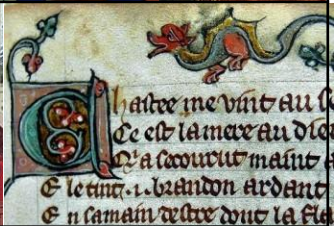 Chastee me vint au s
Ce est la mere au die
Q'a secourut maint a
E le tint .i. brandon ardant
E n samain destre dont la fla